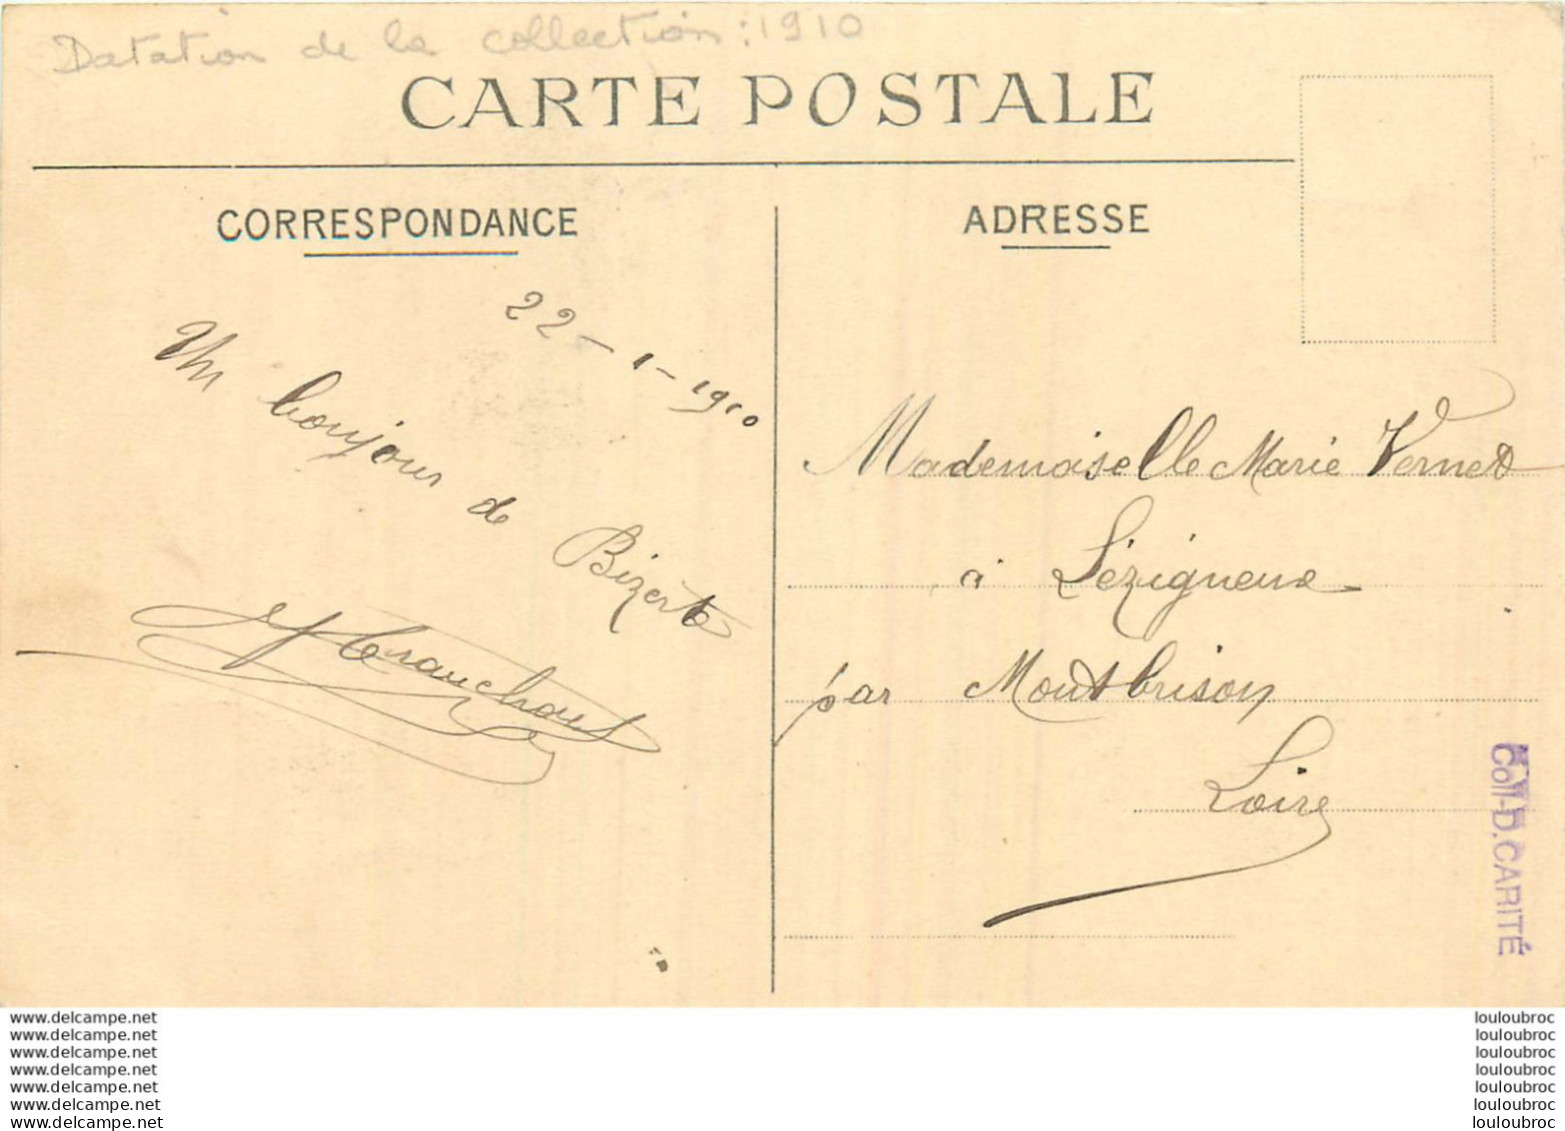 Datation de la collection : 1910
CARTE POSTALE
CORRESPONDANCE
22-1-1910
Un bonjour
de Bizerte
ADRESSE
Mademoiselle Marie Vernet
à Lézigneux
par Montbrison
Loire
Coll-D.CARITÉ
www.delcampe.net
www.delcampe.net
www.delcampe.net
www.delcampe.net
www.delcampe.net
www.delcampe.net
www.delcampe.net
louloubroc
louloubroc
louloubroc
louloubroc
louloubroc
louloubroc
louloubroc